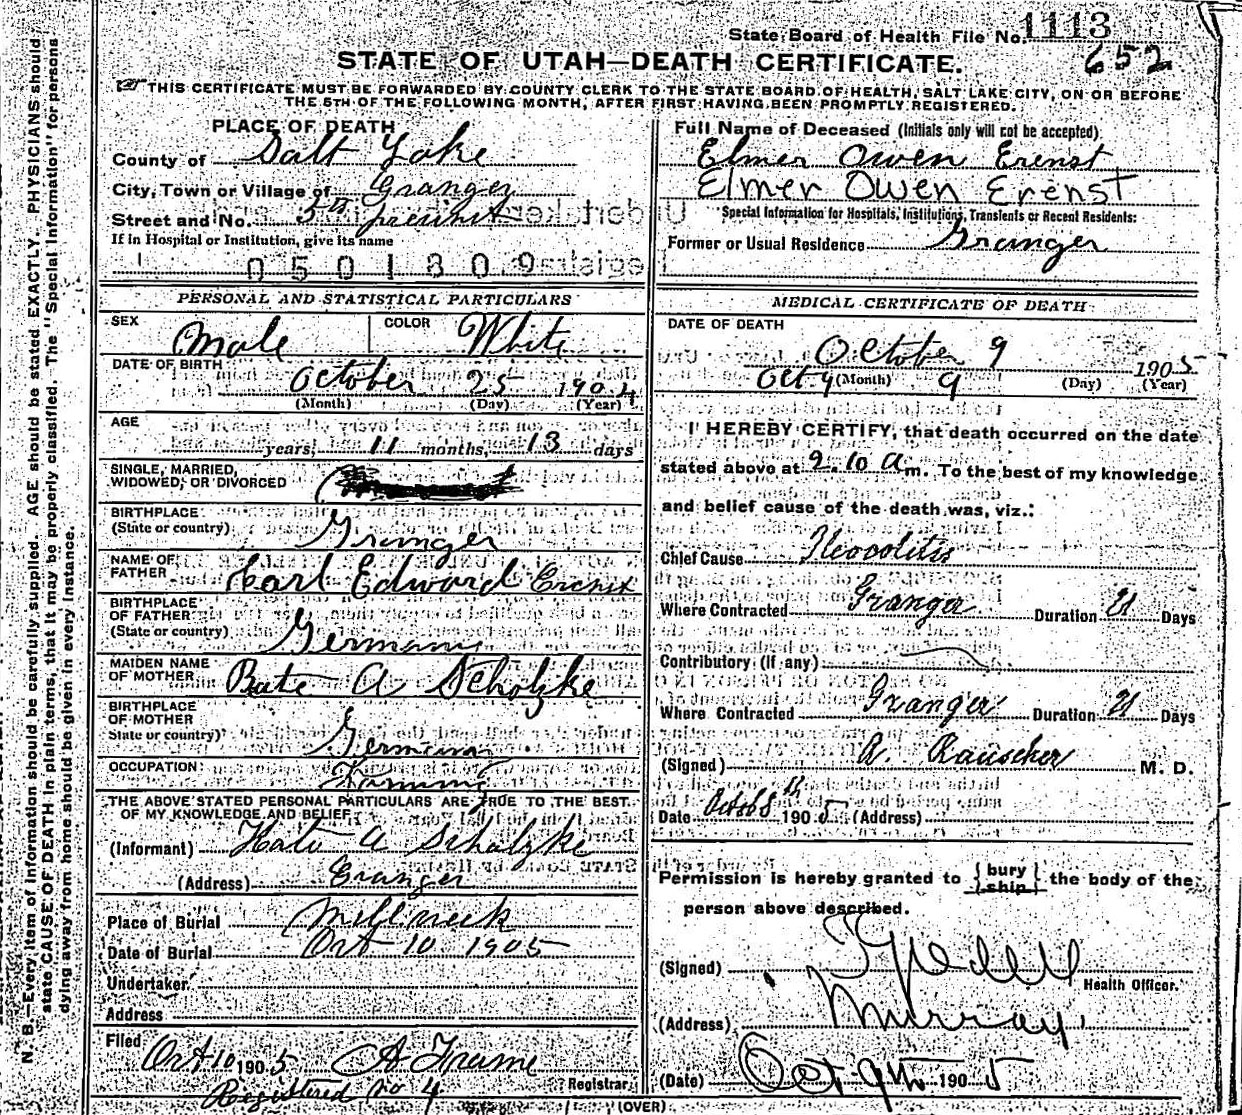 State Board of Health File No. 1113
652
STATE OF UTAH—DEATH CERTIFICATE.
THIS CERTIFICATE MUST BE FORWARDED BY COUNTY CLERK TO THE STATE BOARD OF HEALTH, SALT LAKE CITY, ON OR BEFORE
THE 5TH OF THE FOLLOWING MONTH, AFTER FIRST HAVING BEEN PROMPTLY REGISTERED.
N. B.—Every item of information should be carefully supplied. AGE should be stated EXACTLY. PHYSICIANS should
state CAUSE OF DEATH in plain terms, that it may be properly classified. The "Special Information" for persons
dying away from home should be given in every instance.
PLACE OF DEATH
County of Salt Lake
City, Town or Village of Granger
Street and No. 5th precinct
If in Hospital or Institution, give its name
PERSONAL AND STATISTICAL PARTICULARS
SEX Male COLOR White
DATE OF BIRTH October 25 1904
(Month) (Day) (Year)
AGE
years, 11 months, 13 days
SINGLE, MARRIED,
WIDOWED, OR DIVORCED
BIRTHPLACE
(State or country) Granger
NAME OF
FATHER Carl Edward Erenst
BIRTHPLACE
OF FATHER
(State or country) Germany
MAIDEN NAME
OF MOTHER A Scholzke
BIRTHPLACE
OF MOTHER
State or country) Germany
OCCUPATION Farming
THE ABOVE STATED PERSONAL PARTICULARS ARE TRUE TO THE BEST
OF MY KNOWLEDGE AND BELIEF
(Informant) A Scholzke
(Address) Granger
Place of Burial Millcreek
Date of Burial Oct 10 1905
Undertaker
Address
Filed Oct 10 1905 A Frame Registrar
Registered No 4
Full Name of Deceased (Initials only will not be accepted)
Elmer Owen Erenst
Elmer Owen Erenst
Special Information for Hospitals, Institutions, Transients or Recent Residents:
Former or Usual Residence Granger
MEDICAL CERTIFICATE OF DEATH
DATE OF DEATH
October 9 1905
Oct 9 (Month) 9 (Day) (Year)
I HEREBY CERTIFY, that death occurred on the date
stated above at 9.10 a m. To the best of my knowledge
and belief cause of the death was, viz.:
Chief Cause Ileocolitis
Where Contracted Granger Duration 21 Days
Contributory (If any)
Where Contracted Granger Duration 21 Days
(Signed) A. Rauscher M. D.
Date 1905 (Address)
Permission is hereby granted to { bury ship } the body of the
person above described.
(Signed) Health Officer.
(Address) Murray
(Date) Oct 9th 1905
(OVER)